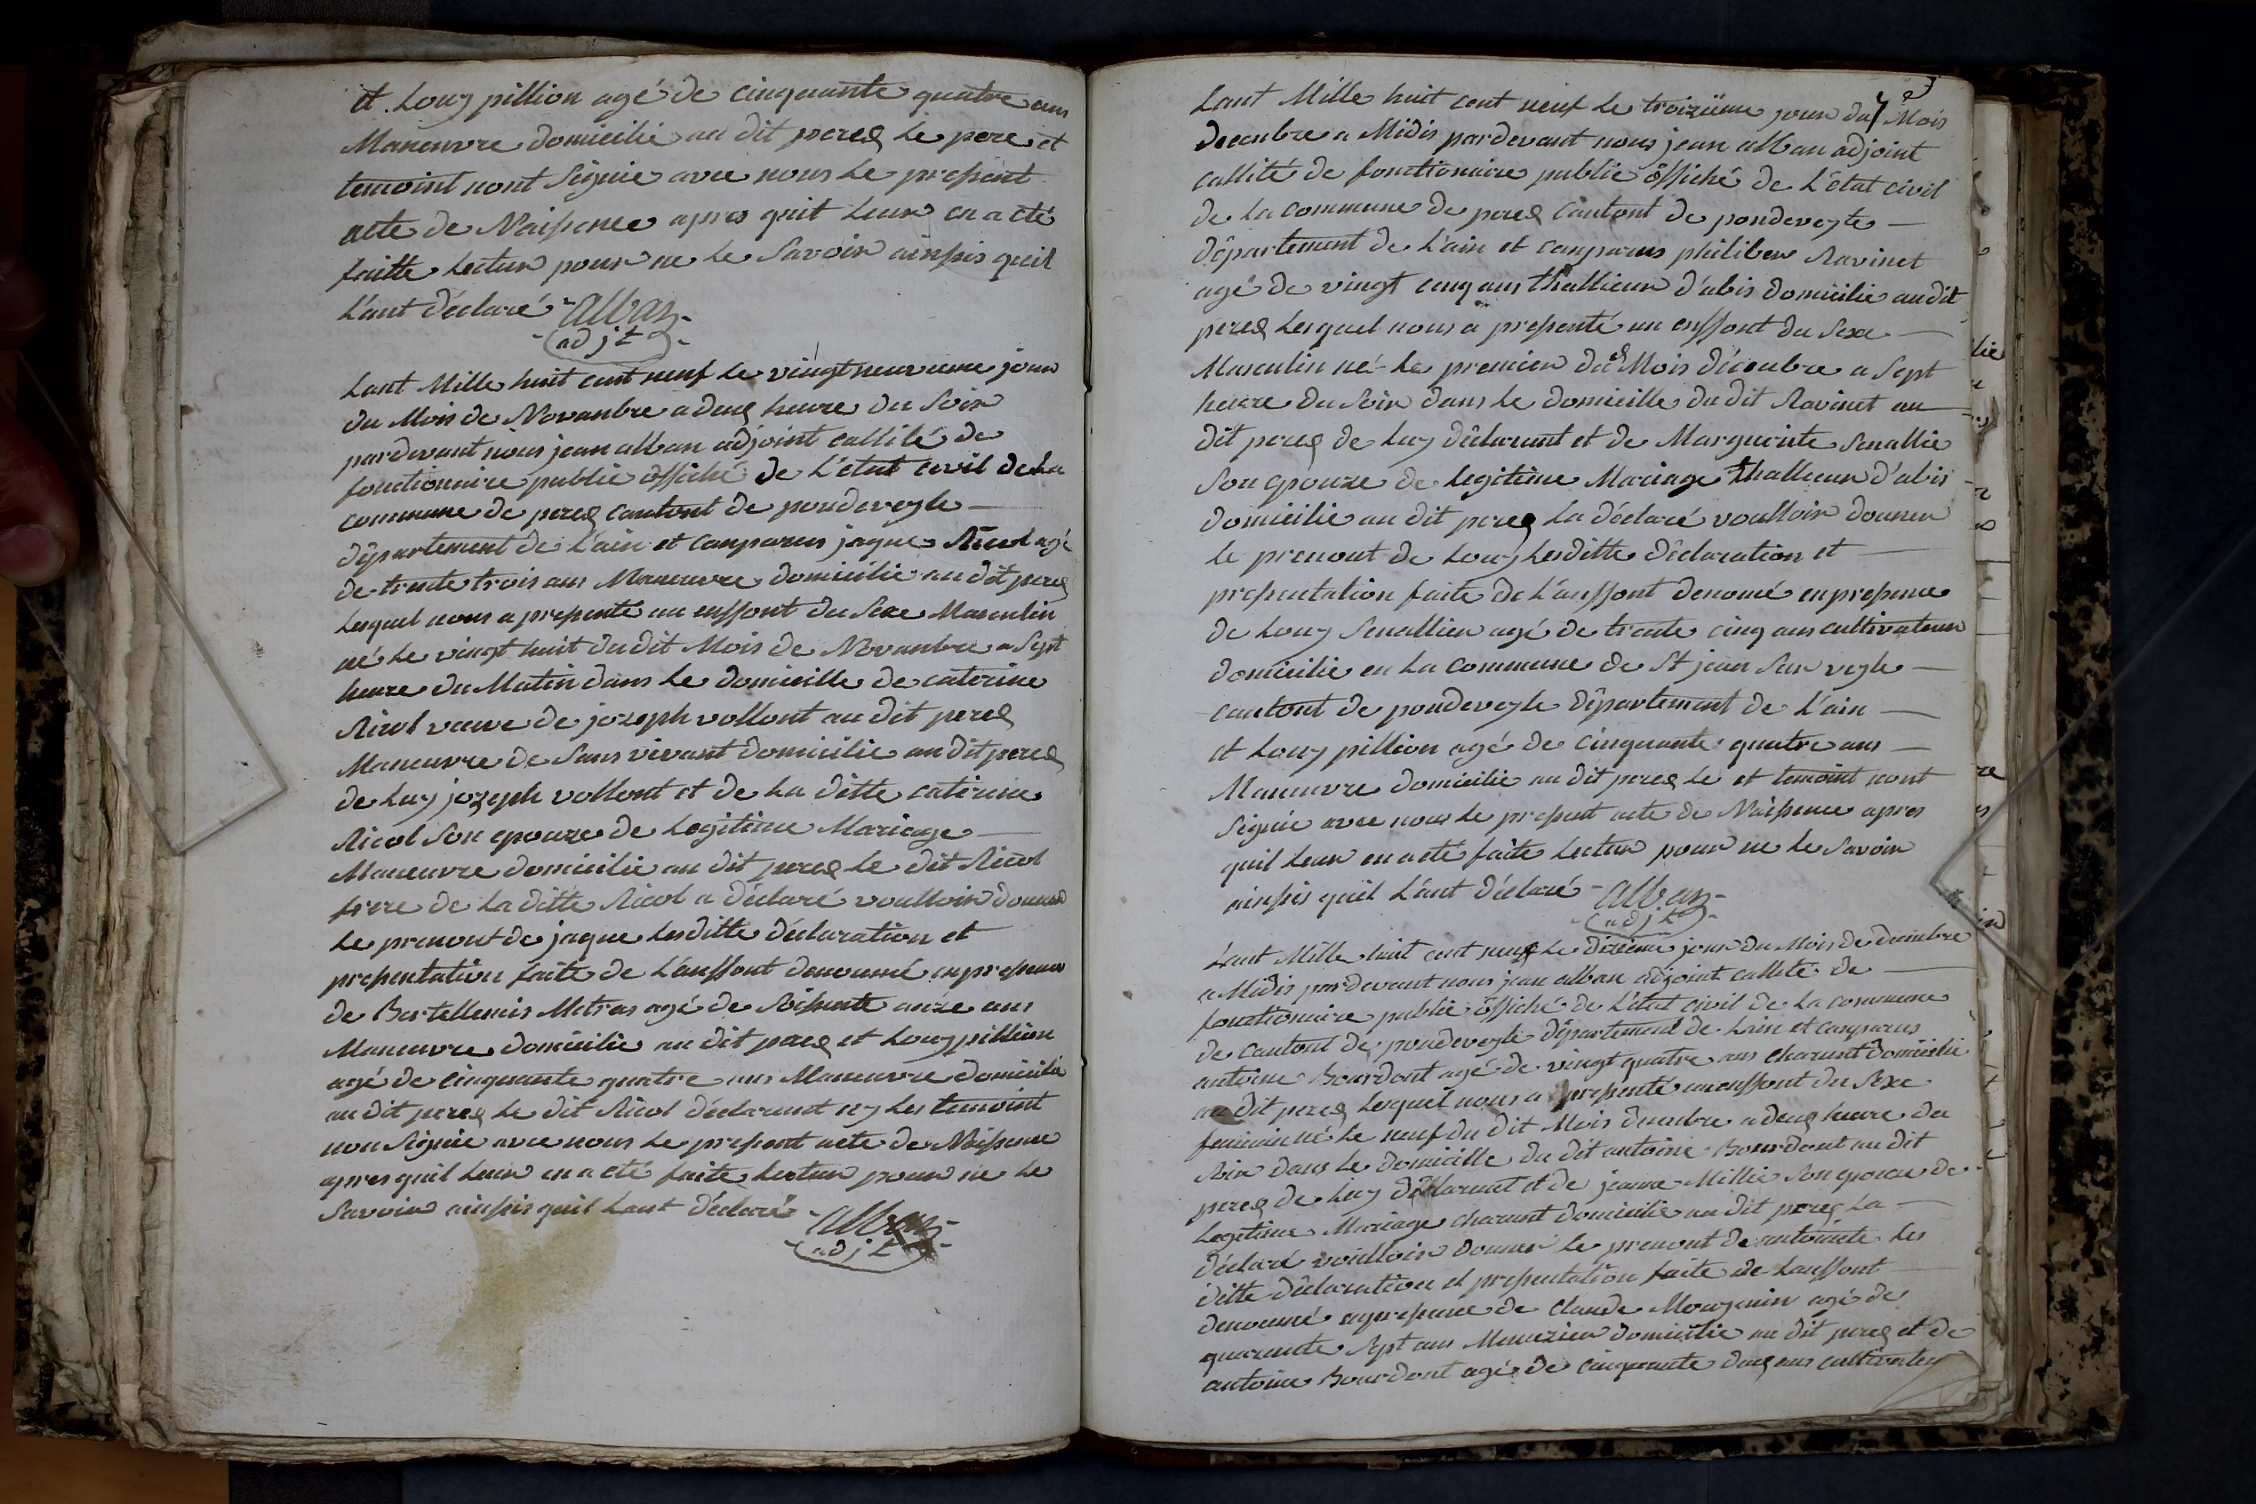 et Louy pillion agé de cinquante quatre ans
Maneuvre domicilie au dit pereq le pere et
temoint nont Signie avec nous le present
acte de Naissence apres quil leur en a eté
faitte lectur pour ne le Savoir ainssis quil
L'ant déclaré - alban -
- adjt -
Lant Mille huit cent neuf le vingt neuvieme jour
du Mois de Novanbre a deuq heure du Soir
pardevant nous jean alban adjoint callité de
fonctionaire public öffiché de L'état civil de La
commune de pereq cantont de pondeveyle
département de L'ain et canparus jaque Nicol agé
de trante trois ans Maneuvre domicilie au dit pereq
Lequel nous a presenté un enffont du Sexe Masculin
né Le vingt huit du dit Mois de Novanbre a Sept
heure du Matin dans Le domicille de caterine
Nicol vauve de jozeph vollont au dit pereq
Maneuvre de Sans vivant domicilie au dit pereq
de Luy jozeph vollont et de La ditte caterine
Nicol Son epouze de Legitime Mariage
Maneuvre domicilie au dit pereq Le dit Nicol
frere de La ditte Nicol a déclaré voulloir donner
Le prenont de jaque Lesditte déclaration et
presentation faite de L'anffont denommé enpresence
de Bertellemis Metras agé de Soissente onze ans
Maneuvre domicilie au dit pereq et Louy pillion
agé de cinquante quatre ans Maneuvre domicilie
au dit pereq Le dit Nicol déclarant ny Les temoint
non Signie avec nous Le present acte de Naissence
apres quil Leur en a eté faite Lectur pour ne Le
Savoir ainssis quil Lant déclaré - alban -
- adjt -
Lant Mille huit cent neuf Le troizieme jour du Mois
decenbre a Midis pardevant nous jean alban adjoint
callité de fonctionaire public öffiché de L'état civil
de La commune de pereq cantont de pondeveyle
département de L'ain et canparus philiber Ravinet
agé de vingt cinq ans thallieur d'abis domicilie au dit
pereq Lesquel nous a presenté un enffont du Sexe
Masculin né Le premier du Mois décenbre a Sept
heure du Soir dans Le domicille du dit Ravinet au
dit pereq de Luy déclarant et de Marguerite Senallie
Son epouze de Legitime Mariage thalleur d'abis
domicilie au dit pereq La déclaré voulloir donner
le prenont de Louy Lesditte déclaration et
presentation faite de L'anffont denomé enpresence
de Louy Senallier agé de trente cinq ans cultivateur
domicilie en La commune de St jean Sur veyle
cantont de pondeveyle département de L'ain
et Louy pillion agé de cinquante quatre ans
Maneuvre domicilie au dit pereq Le et temoint nont
Signie avec nous Le present acte de Naissence apres
quil Leur en a eté faite Lectur pour ne Le Savoir
ainssis quil L'ant déclaré - alban -
- adjt -
Lant Mille huit cent neuf Le dizieme jour du Mois de decenbre
a Midis pardevant nous jean alban adjoint callité de
fonctionaire public öffiché de L'état civil de La commune
de cantont de pondeveyle département de Lain et canparus
antoine Bourdont agé de vingt quatre ans charunt domicilie
au dit pereq Lesquel nous a presenté un enffont du Sexe
feminin né Le neuf du dit Mois decenbre a deuq heure du
Soir dans Le domicille du dit antoine Bourdont au dit
pereq de Luy déclarant et de jeanne Millie Son epouze de
Legitime Mariage charunt domicilie au dit pereq La
déclaré voulloir donner Le prenont de antoinete Les
ditte déclaration et presentation faite de Lanffont
denommé enpresence de Claude Mongenin agé de
quarante Sept ans Menuzier domicilie au dit pereq et de
antoine Bourdont agé de cinquante deuq ans cultivateur